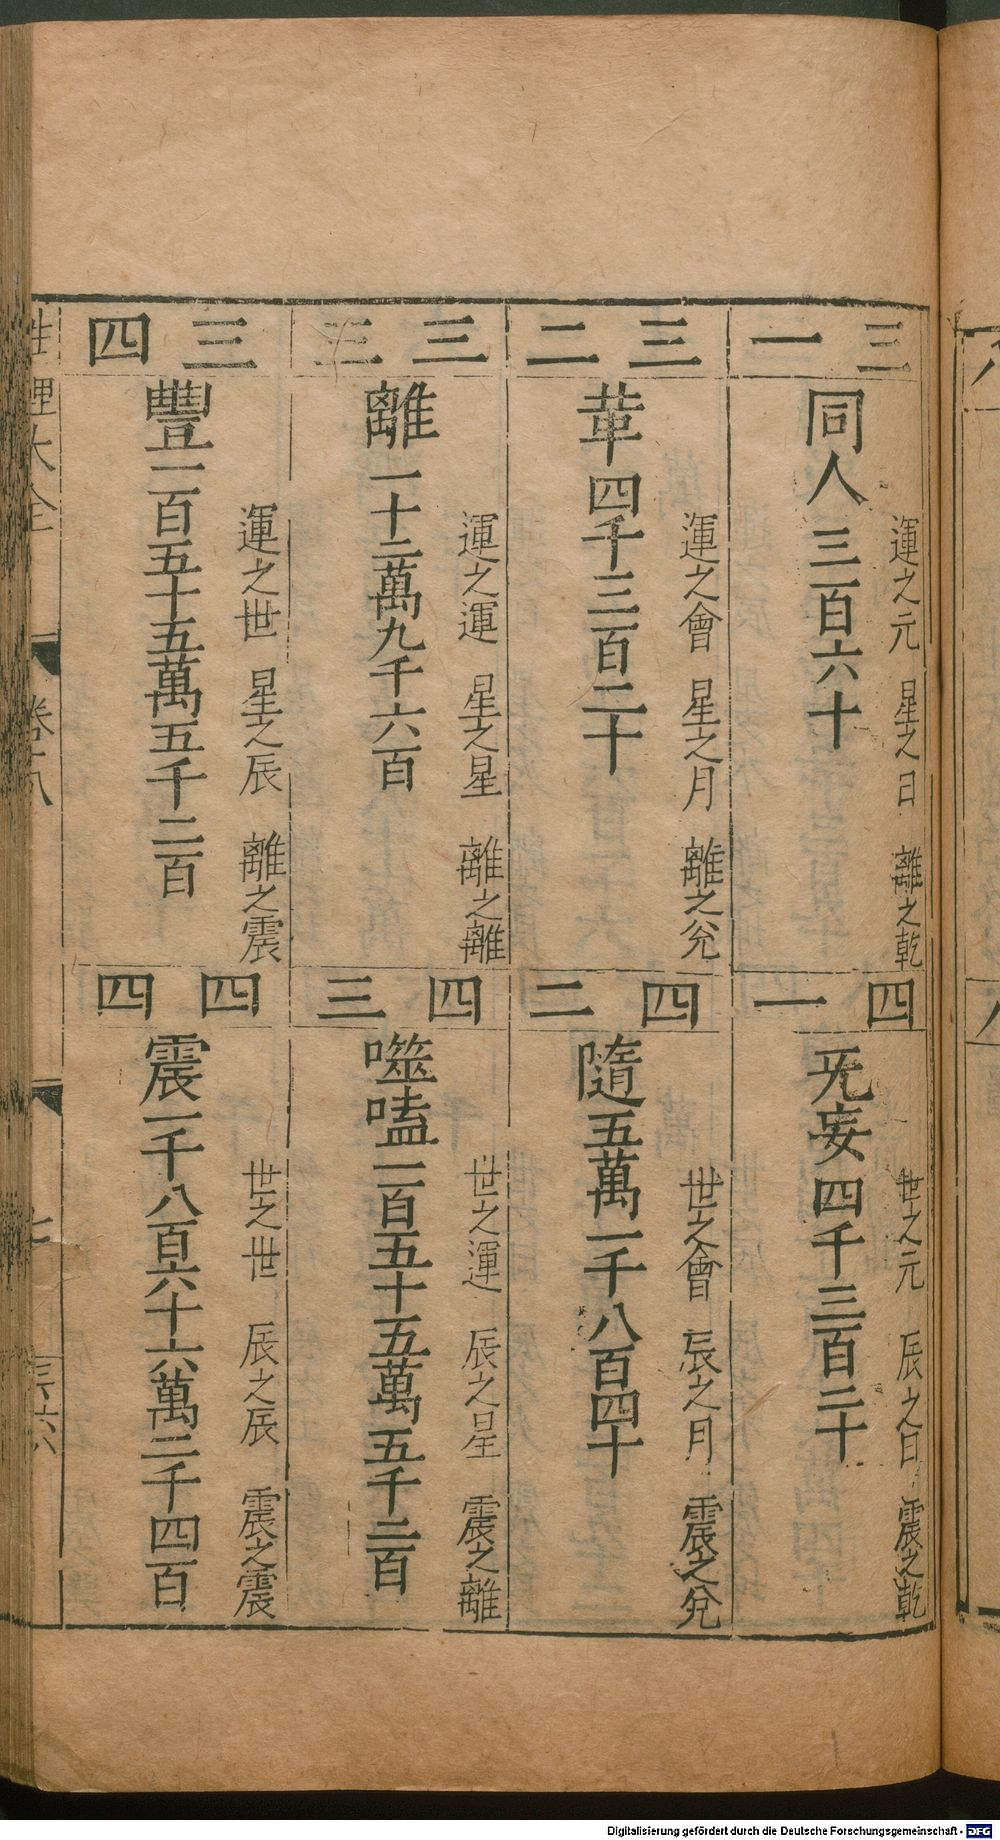 三一
運之元 星之日 離之乾
同人 三百六十
三二
運之會 星之月 離之兊
革 四千三百二十
三三
運之運 星之星 離之離
離 一十二萬九千六百
三四
運之世 星之辰 離之震
豐 一百五十五萬五千二百
四一
世之元 辰之日 震之乾
无妄 四千三百二十
四二
世之會 辰之月 震之兊
隨 五萬一千八百四十
四三
世之運 辰之星 震之離
噬嗑 一百五十五萬五千二百
四四
世之世 辰之辰 震之震
震 一千八百六十六萬二千四百
性理大全 卷十八
Digitalisierung gefördert durch die Deutsche Forschungsgemeinschaft - DFG